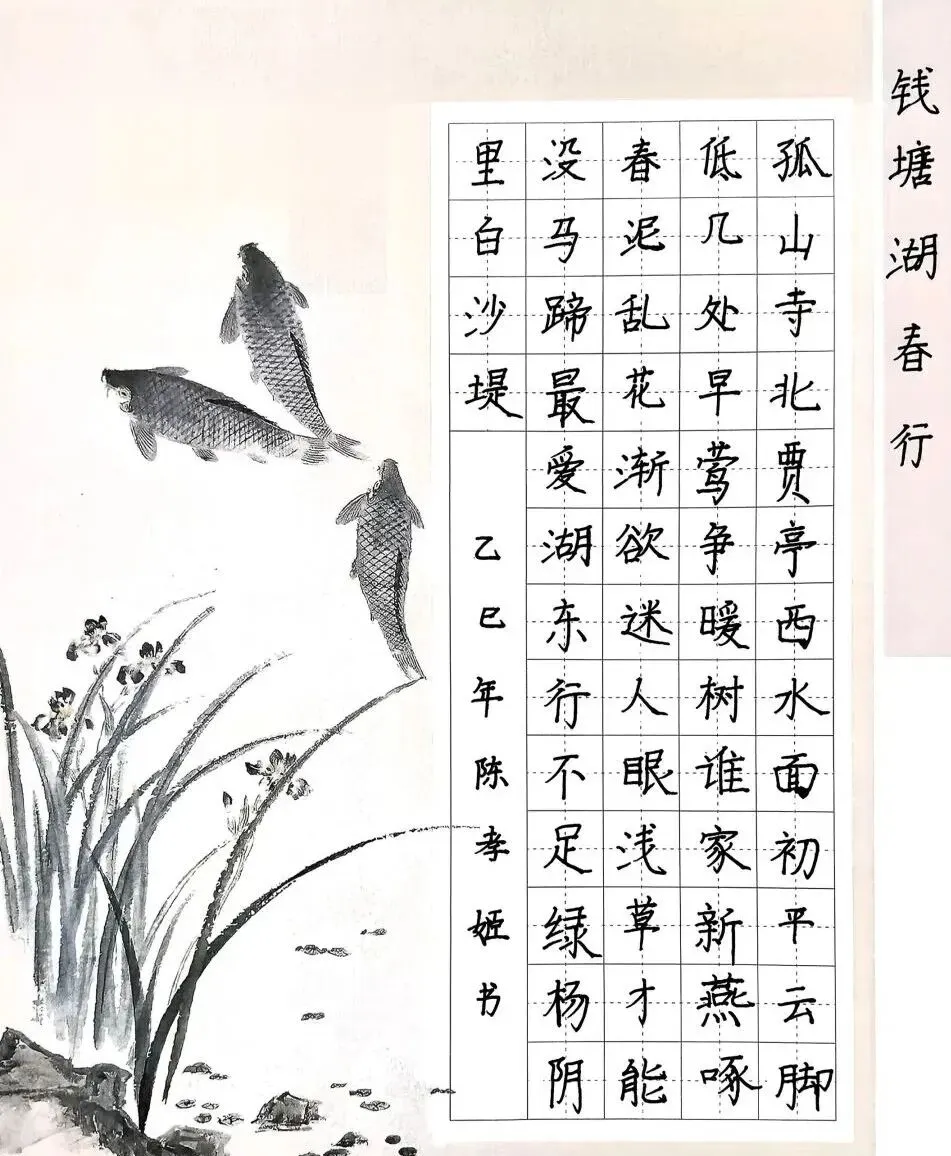 钱塘湖春行
孤山寺北贾亭西水面初平云脚
低几处早莺争暖树谁家新燕啄
春泥乱花渐欲迷人眼浅草才能
没马蹄最爱湖东行不足绿杨阴
里白沙堤
乙巳年陈孝姬书